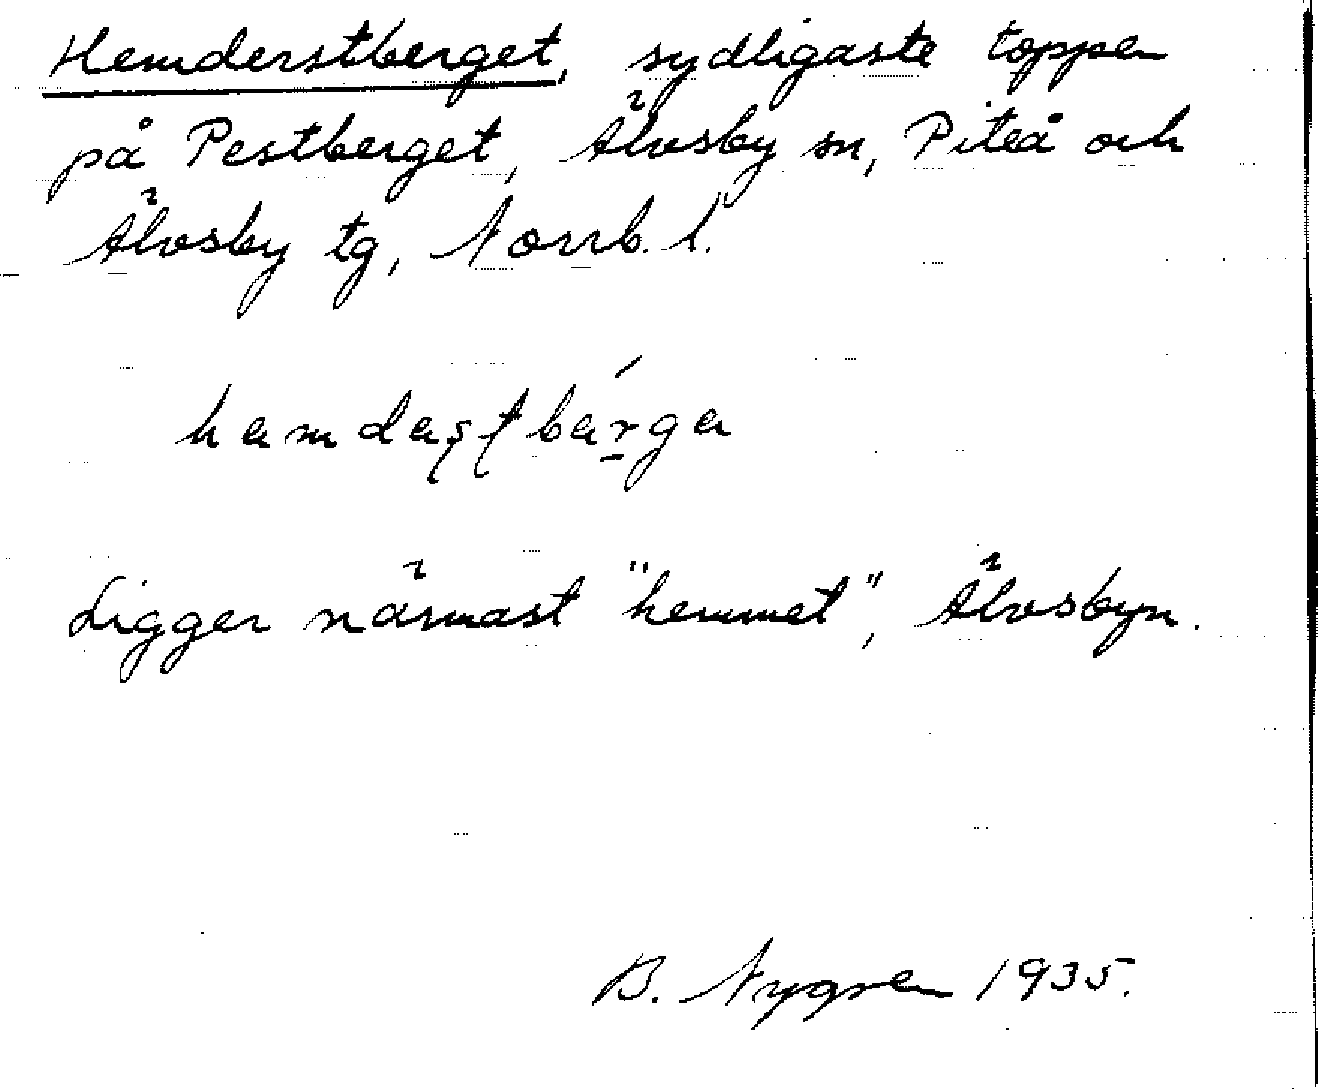 Hemderstberget, sydligaste toppen
på Pestberget, Älvsby sn, Piteå och
Älvsby tg, Norrb. l.
hamdaʂʈbárga
Ligger närmast "hemmet", Älvsbyn.
B. Nygren 1935.